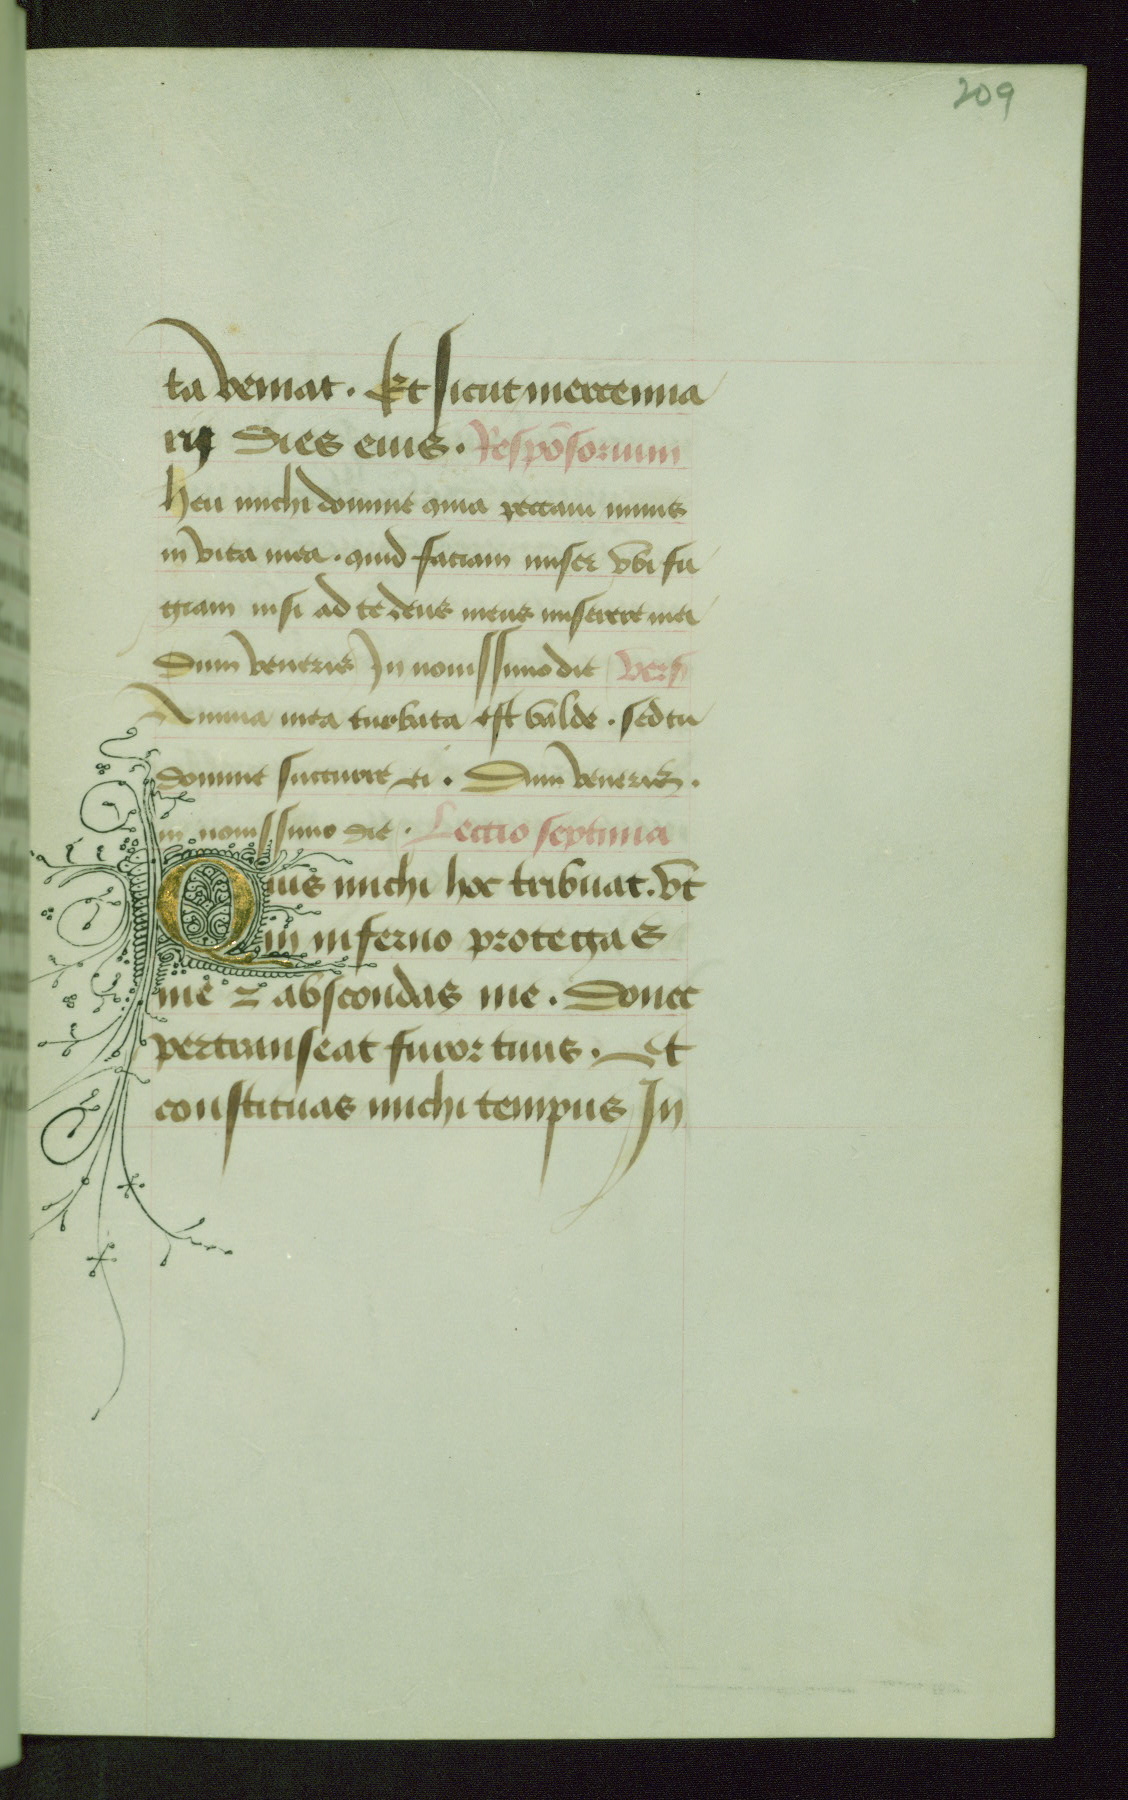 209
ta veniat. Et sicut mercenna
rij dies eius. Respōsorium
Heu michi domine quia peccaui nimis
in vita mea. quid faciam miser vbi fu
giam nisi ad te deus meus miserere mei
Dum veneris In nouissimo die Vers
Anima mea turbata est valde. sed tu
domine succurre ei. Dum veneris.
in nouissimo die. Lectio septima
Quis michi hoc tribuat. vt
in inferno protegas
me ⁊ abscondas me. Donec
pertranseat furor tuus. Et
constituas michi tempus In